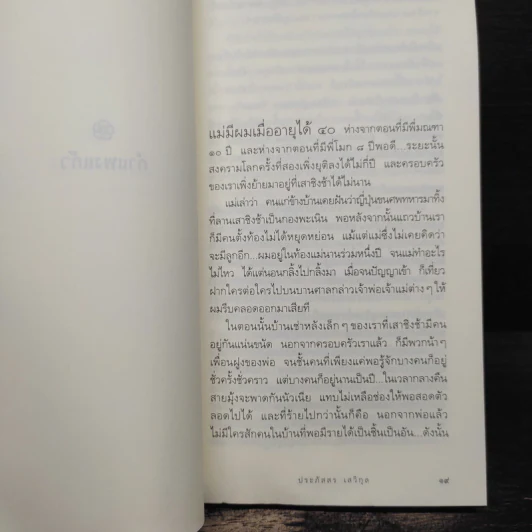 แม่มีผมเมื่ออายุได้ ๔๐ ห่างจากตอนที่มีพี่มณฑา
๑๐ ปี และห่างจากตอนที่มีพี่โมก ๘ ปีพอดี...ระยะนั้น
สงครามโลกครั้งที่สองเพิ่งยุติลงได้ไม่กี่ปี และครอบครัว
ของเราเพิ่งย้ายมาอยู่ที่เสาชิงช้าได้ไม่นาน
แม่เล่าว่า คนแก่ข้างบ้านเคยฝันว่าญี่ปุ่นขนศพทหารมาทิ้ง
ที่ลานเสาชิงช้าเป็นกองพะเนิน พอหลังจากนั้นแถวบ้านเรา
ก็มีคนตั้งท้องไม่ได้หยุดหย่อน แม้แต่แม่ซึ่งไม่เคยคิดว่า
จะมีลูกอีก...ผมอยู่ในท้องแม่นานร่วมหนึ่งปี จนแม่ทำอะไร
ไม่ไหว ได้แต่นอนกลิ้งไปกลิ้งมา เมื่อจนปัญญาเข้า ก็เที่ยว
ฝากใครต่อใครไปบนบานศาลกล่าวเจ้าพ่อเจ้าแม่ต่างๆ ให้
ผมรีบคลอดออกมาเสียที
ในตอนนั้นบ้านเช่าหลังเล็กๆ ของเราที่เสาชิงช้ามีคน
อยู่กันแน่นขนัด นอกจากครอบครัวเราแล้ว ก็มีพวกน้าๆ
เพื่อนฝูงของพ่อ จนชั้นคนที่เพียงแค่พอรู้จักบางคนก็อยู่
ชั่วครั้งชั่วคราว แต่บางคนก็อยู่นานเป็นปี...ในเวลากลางคืน
สายมุ้งจะพาดกันนัวเนีย แทบไม่เหลือช่องให้พอสอดตัว
ลอดไปได้ และที่ร้ายไปกว่านั้นก็คือ นอกจากพ่อแล้ว
ไม่มีใครสักคนในบ้านที่พอมีรายได้เป็นชิ้นเป็นอัน...ดังนั้น
ประภัสสร เสวิกุล
๑๙